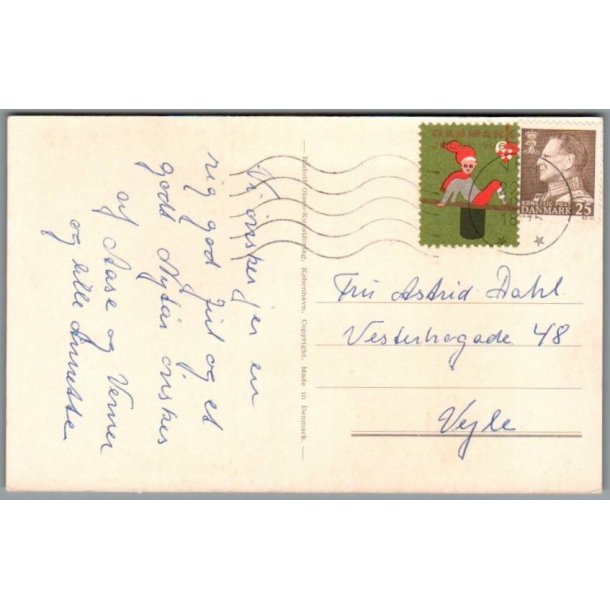 Vi ønsker jer en
rig god Jul og et
godt Nytår ønskes
af Aase og Verner
og lille Annette
Rudolf Olsens Kunstforlag, København. Copyright. Made in Denmark.
DANMARK
KONGELIG POST
DANMARK 25
Fru Astrid Dahl
Vesterbogade 48
Vejle